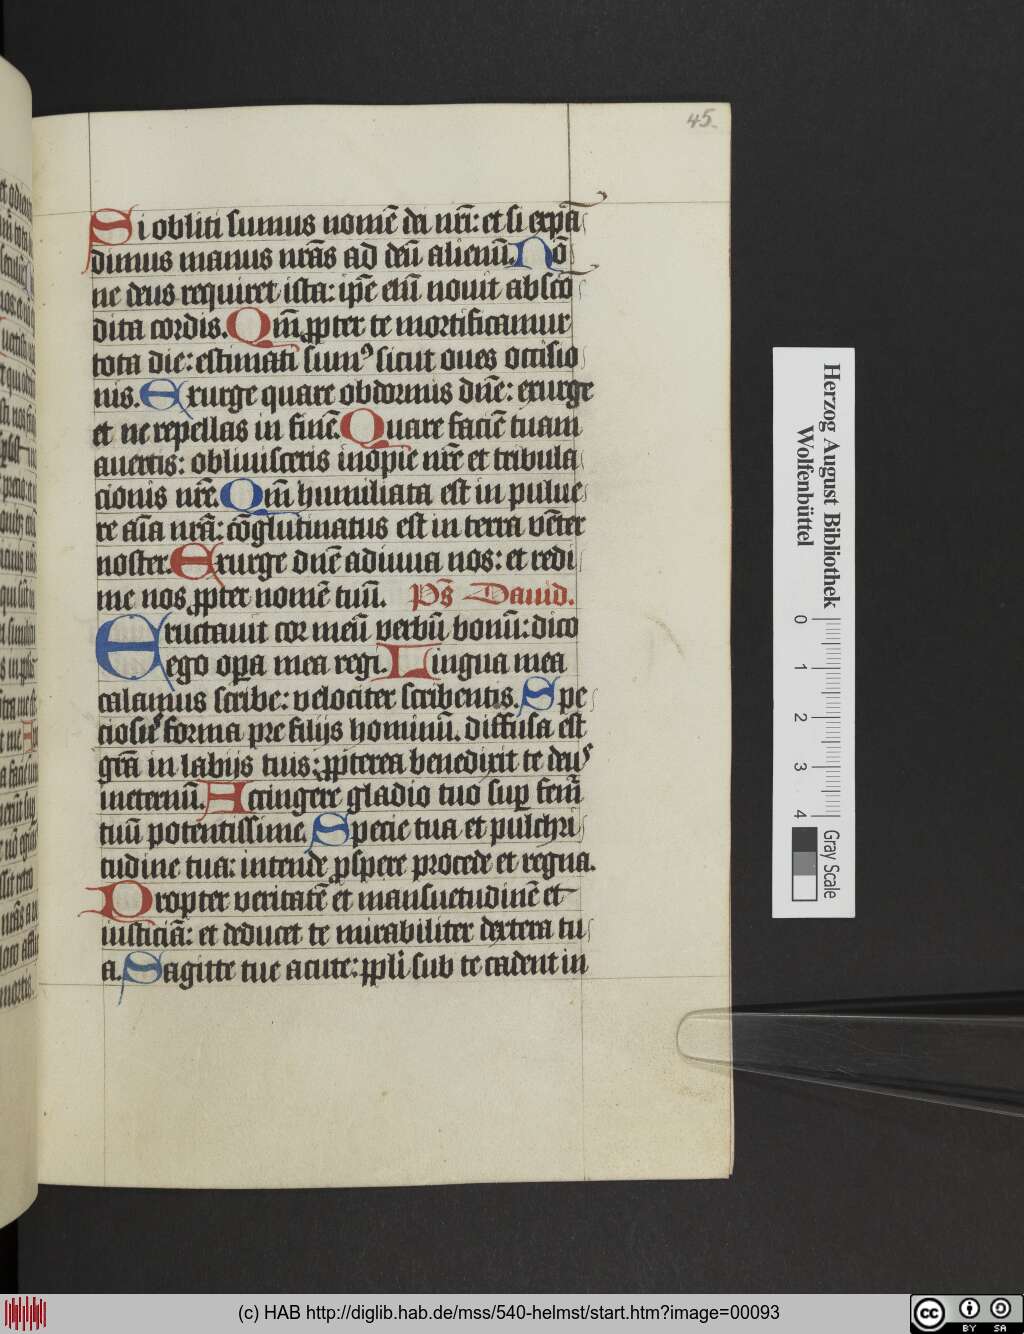 45.
Si obliti sumus nomē dei nr̄i: et si expā
dimus manus nrās ad deū alienū. Nō
ne deus requiret ista: ip̄e eni novit absco
dita cordis. Qm̄ ꝓpter te mortificamur
tota die: estimati sumꝰ sicut oues occisio
nis. Exurge quare obdormis dn̄e: exurge
et ne repellas in finē. Quare faciē tuam
auertis: obliuisceris inopie nr̄e et tribula
cionis nr̄e. Qm̄ humiliata est in pulue
re aīa nrā: cōglutinatus est in terra vēter
noster. Exurge dn̄e adiuua nos: et redi
me nos ꝓpter nomē tuū. Ps̄ Dauid.
Eructauit cor meū verbū bonū: dico
ego oꝑa mea regi. Lingua mea
calamus scribe: velociter scribentis. Spe
ciosꝰ forma pre filijs hominū. diffusa est
grā in labijs tuis: ꝓpterea benedixit te deꝰ
ineternū. Accingere gladio tuo suꝑ femꝰ
tuū potentissime. Specie tua et pulchri
tudine tua: intende ꝓspere procede et regna.
Propter veritatē et mansuetudinē et
iusticiā: et deducet te mirabiliter dextera tu
a. Sagitte tue acute: pp̄li sub te cadent in
Herzog August Bibliothek
Wolfenbüttel
0 1 2 3 4
Gray Scale
(c) HAB http://diglib.hab.de/mss/540-helmst/start.htm?image=00093
cc BY SA